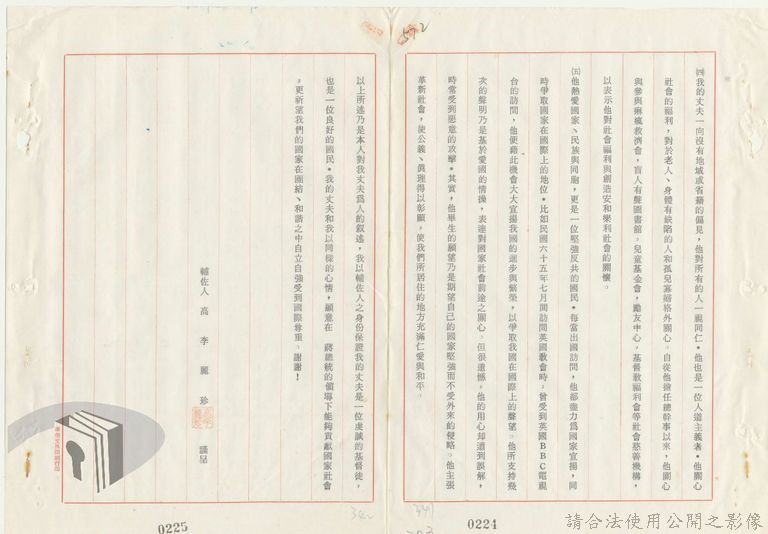 572
㈣我的丈夫一向沒有地域或省籍的偏見，他對所有的人一視同仁。他也是一位人道主義者。他關心
社會的福利，對於老人、身體有缺陷的人和孤兒寡婦格外關心。自從他擔任總幹事以來，他關心
與參與痲瘋救濟會，盲人有聲圖書館。兒童基金會，勵友中心，基督教福利會等社會慈善機構，
以表示他對社會福利與創造安和樂利社會的關懷。
㈤他熱愛國家、民族與同胞，更是一位堅強反共的國民。每當出國訪問，他都盡力為國家宣揚，同
時爭取國家在國際上的地位。比如民國六十五年七月間訪問英國教會時，曾受到英國BBC電視
台的訪問，他便藉此機會大大宣揚我國的進步與繁榮，以爭取我國在國際上的聲望。他所支持幾
次的聲明乃是基於愛國的情操，表達對國家社會前途之關心。但很遺憾，他的用心却遭到誤解，
時常受到惡意的攻擊。其實，他畢生的願望乃是期望自己的國家堅強而不受外來的侵略。他主張
革新社會，使公義、眞理得以彰顯，使我們所居住的地方充滿仁愛與和平。
0224
341
以上所述乃是本人對我丈夫爲人的叙述，我以輔佐人之身份保證我的丈夫是一位虔誠的基督徒，
也是一位良好的國民。我的丈夫和我以同樣的心情，願意在　蔣總統的領導下能夠貢獻國家社會
，更祈望我們的國家在團結、和諧之中自立自強受到國際尊重。謝謝！
輔佐人　高　李　麗　珍　謹呈
0225
342
請合法使用公開之影像